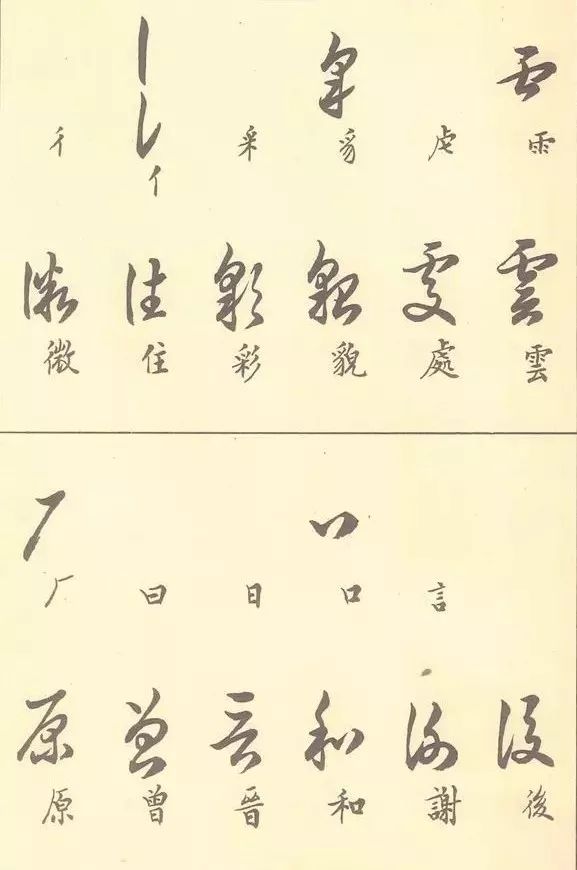 雨 豸 亻
雨 虍 豸 采 亻 彳
雲 處 貌 彩 住 微
雲 處 貌 彩 住 微
口 厂
言 口 日 曰 厂
後 謝 和 晉 曾 原
後 謝 和 晉 曾 原